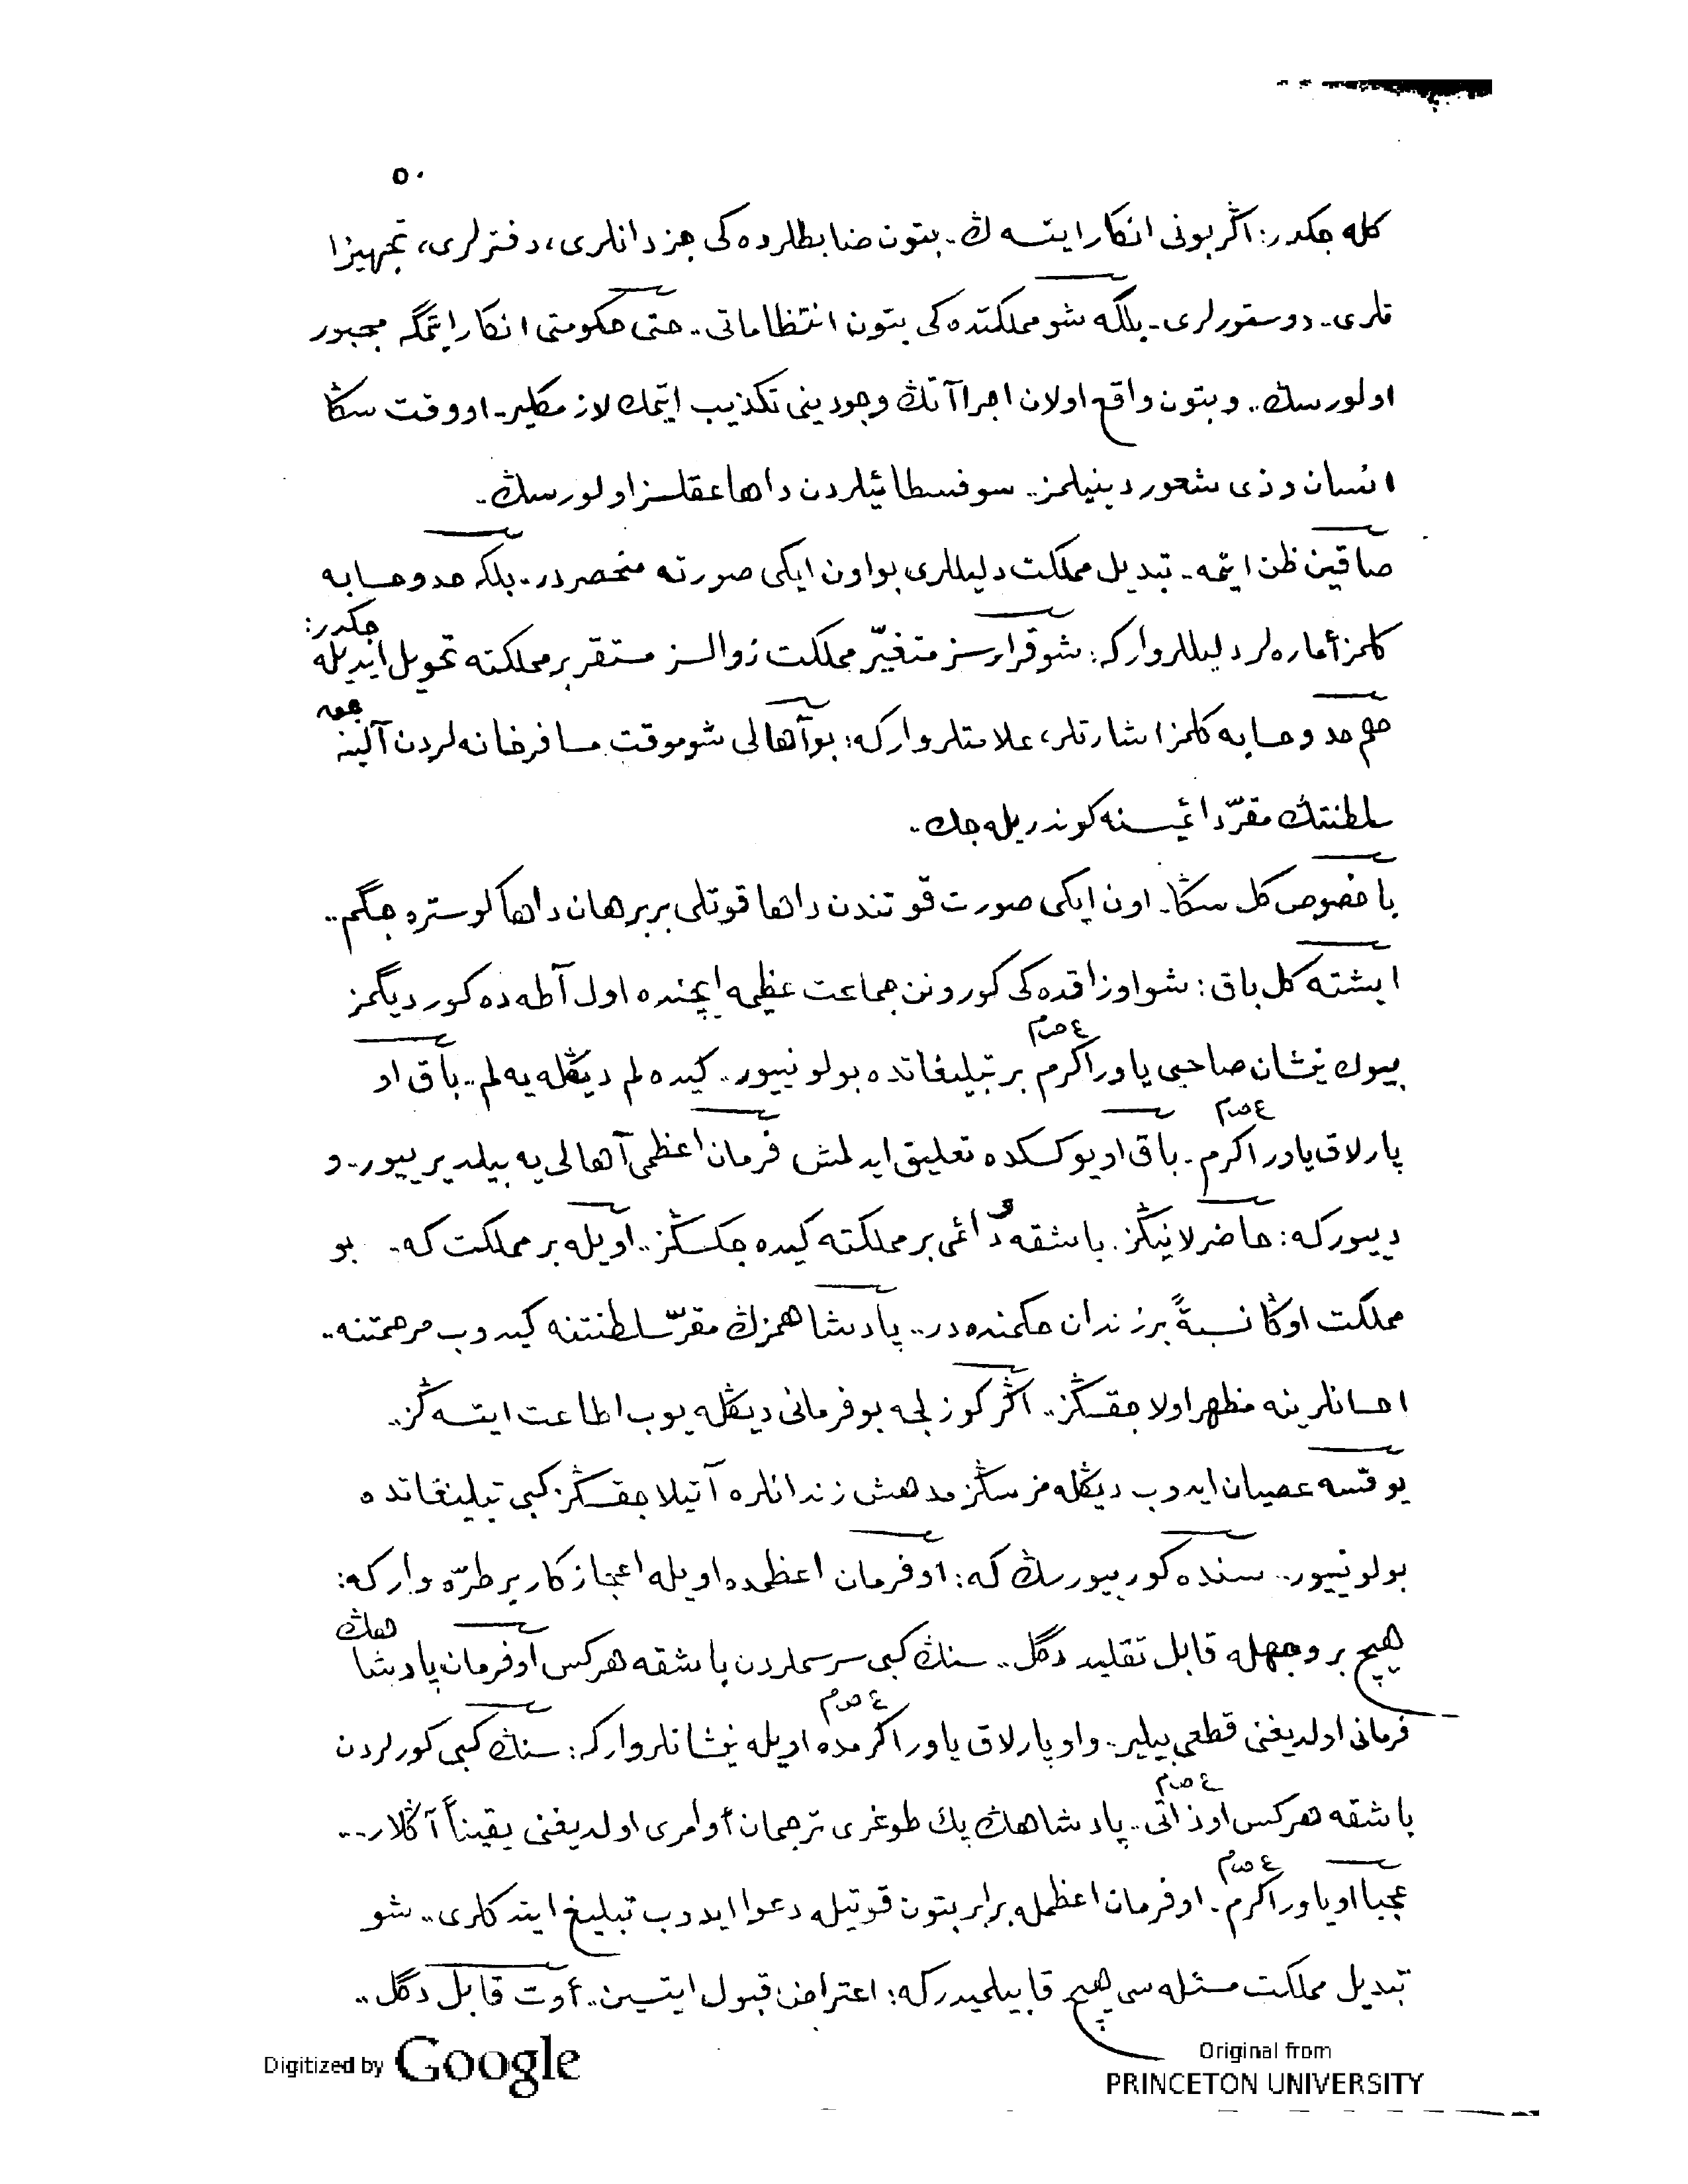 ٥٠
كله جكدر: اگر بونی انكار ایتسه ڭ- بتون ضابطلرده كی جزدانلری، دفترلری، تجهیزا
تلری- دوستورلری- بلكه شو مملكتده كی بتون انتظاماتی.. حتی حكومتی انكار ایتمگه مجبور
اولورسڭ.. و بتون واقع اولان اجراآتڭ وجودینی تكذیب ایتمك لازمكلیر- او وقت سڭا
انسان و ذی شعور دینیلمز.. سوفسطائیلردن داها عقلسز اولورسڭ-
صاقین ظن ایتمه- تبدیل مملكت دلیللری بو اون ایكی صورته منحصردر- بلكه حد و حسابه
كلمز أماره لر دلیللر وار كه: شو قرارسز متغیّر مملكت زوالسز مستقر بر مملكته تحویل ایدیله جكدر:
هم حد و حسابه كلمز اشارتلر، علامتلر وار كه: بو آهالی شو موقت مسافرخانه لردن آلینه جق
سلطنتڭ مقرّ دائمیسنه كوندریله جك..
باخصوص كل سڭا- اون ایكی صورت قوتندن داها قوتلی بر برهان داها كوستره جگم..
ایشته كل باق: شو اوزاقده كی كورونن جماعت عظیمه ایچنده اول آطه ده كوردیگمز
بیوك نیشان صاحبی یاور اكرم ع ص م بر تبلیغاتده بولونییور.. كیده لم دیڭله یه لم.. باق او
پارلاق یاور اكرم ع ص م- باق او یوكسكده تعلیق ایدلمش فرمان اعظمی آهالی یه بیلدیرییور- و
دییور كه: حاضرلانیڭز. باشقه و دائمی بر مملكته كیده جكسڭز.. اویله بر مملكت كه- بو
مملكت اوڭا نسبةً بر زندان حكمنده در.. پادشاهمزڭ مقرّ سلطنتنه كیدوب مرحمتنه..
احسانلرینه مظهر اولاجقسڭز.. اگر كوزلجه بو فرمانی دیڭله یوب اطاعت ایتسه ڭز..
یوقسه عصیان ایدوب دیڭله مزسڭز مدهش زندانلره آتیلاجقسڭز كبی تبلیغاتده
بولونییور.. سنده كورییورسڭ كه: او فرمان اعظمده اویله اعجازكار بر طرّه وار كه:
هیچ بر وجهله قابل تقلید دگل.. سنڭ كبی سرسملردن باشقه هركس او فرمان پادشاهڭ
فرمانی اولدیغنی قطعی بیلیر.. و او پارلاق یاور اكرمده ع ص م اویله نیشانلر وار كه: سنڭ كبی كورلردن
باشقه هركس او ذاتی ع ص م.. پادشاهڭ پك طوغری ترجمان أوامری اولدیغنی یقیناً آڭلار...
عجبا او یاور اكرم ع ص م- او فرمان اعظمله برابر بتون قوتیله دعوا ایدوب تبلیغ ایتدكلری.. شو
تبدیل مملكت مسئله سی هیچ قابیلمیدر كه: اعتراض قبول ایتسین.. أوت قابل دگل..
Digitized by Google
Original from
PRINCETON UNIVERSITY